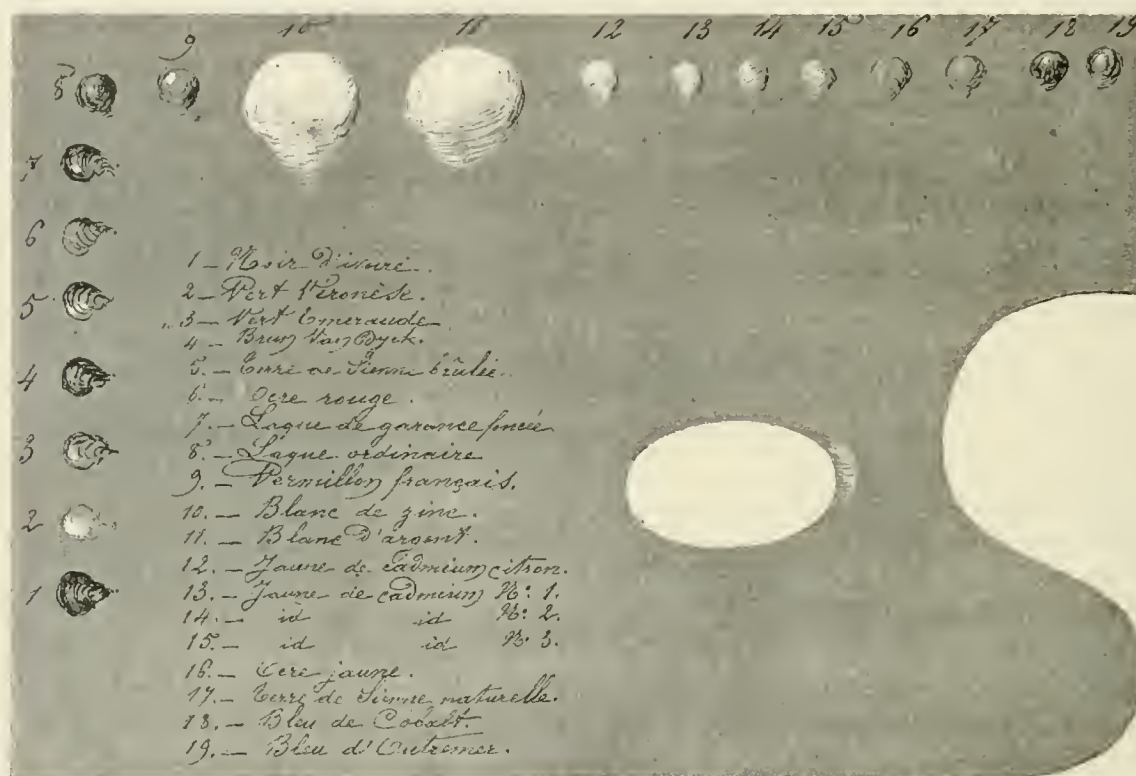 10 11 12 13 14 15 16 17 18 19
9
8
7
6
5
4
3
2
1
1 – Noir d'ivoire.
2 – Vert Véronèse.
3 – Vert Emeraude
4 – Brun Van Dyck.
5. – Terre de Sienne brûlée.
6. – Ocre rouge.
7. – Laque de garance foncée
8. – Laque ordinaire
9. – Vermillon français.
10. – Blanc de zinc.
11. – Blanc d'argent.
12. – Jaune de Cadmium citron.
13. – Jaune de cadmium N: 1.
14. – id id N: 2.
15. – id id N: 3.
16. – Ocre jaune.
17. – Terre de Sienne naturelle.
18. – Bleu de Cobalt
19. – Bleu d'Outremer.